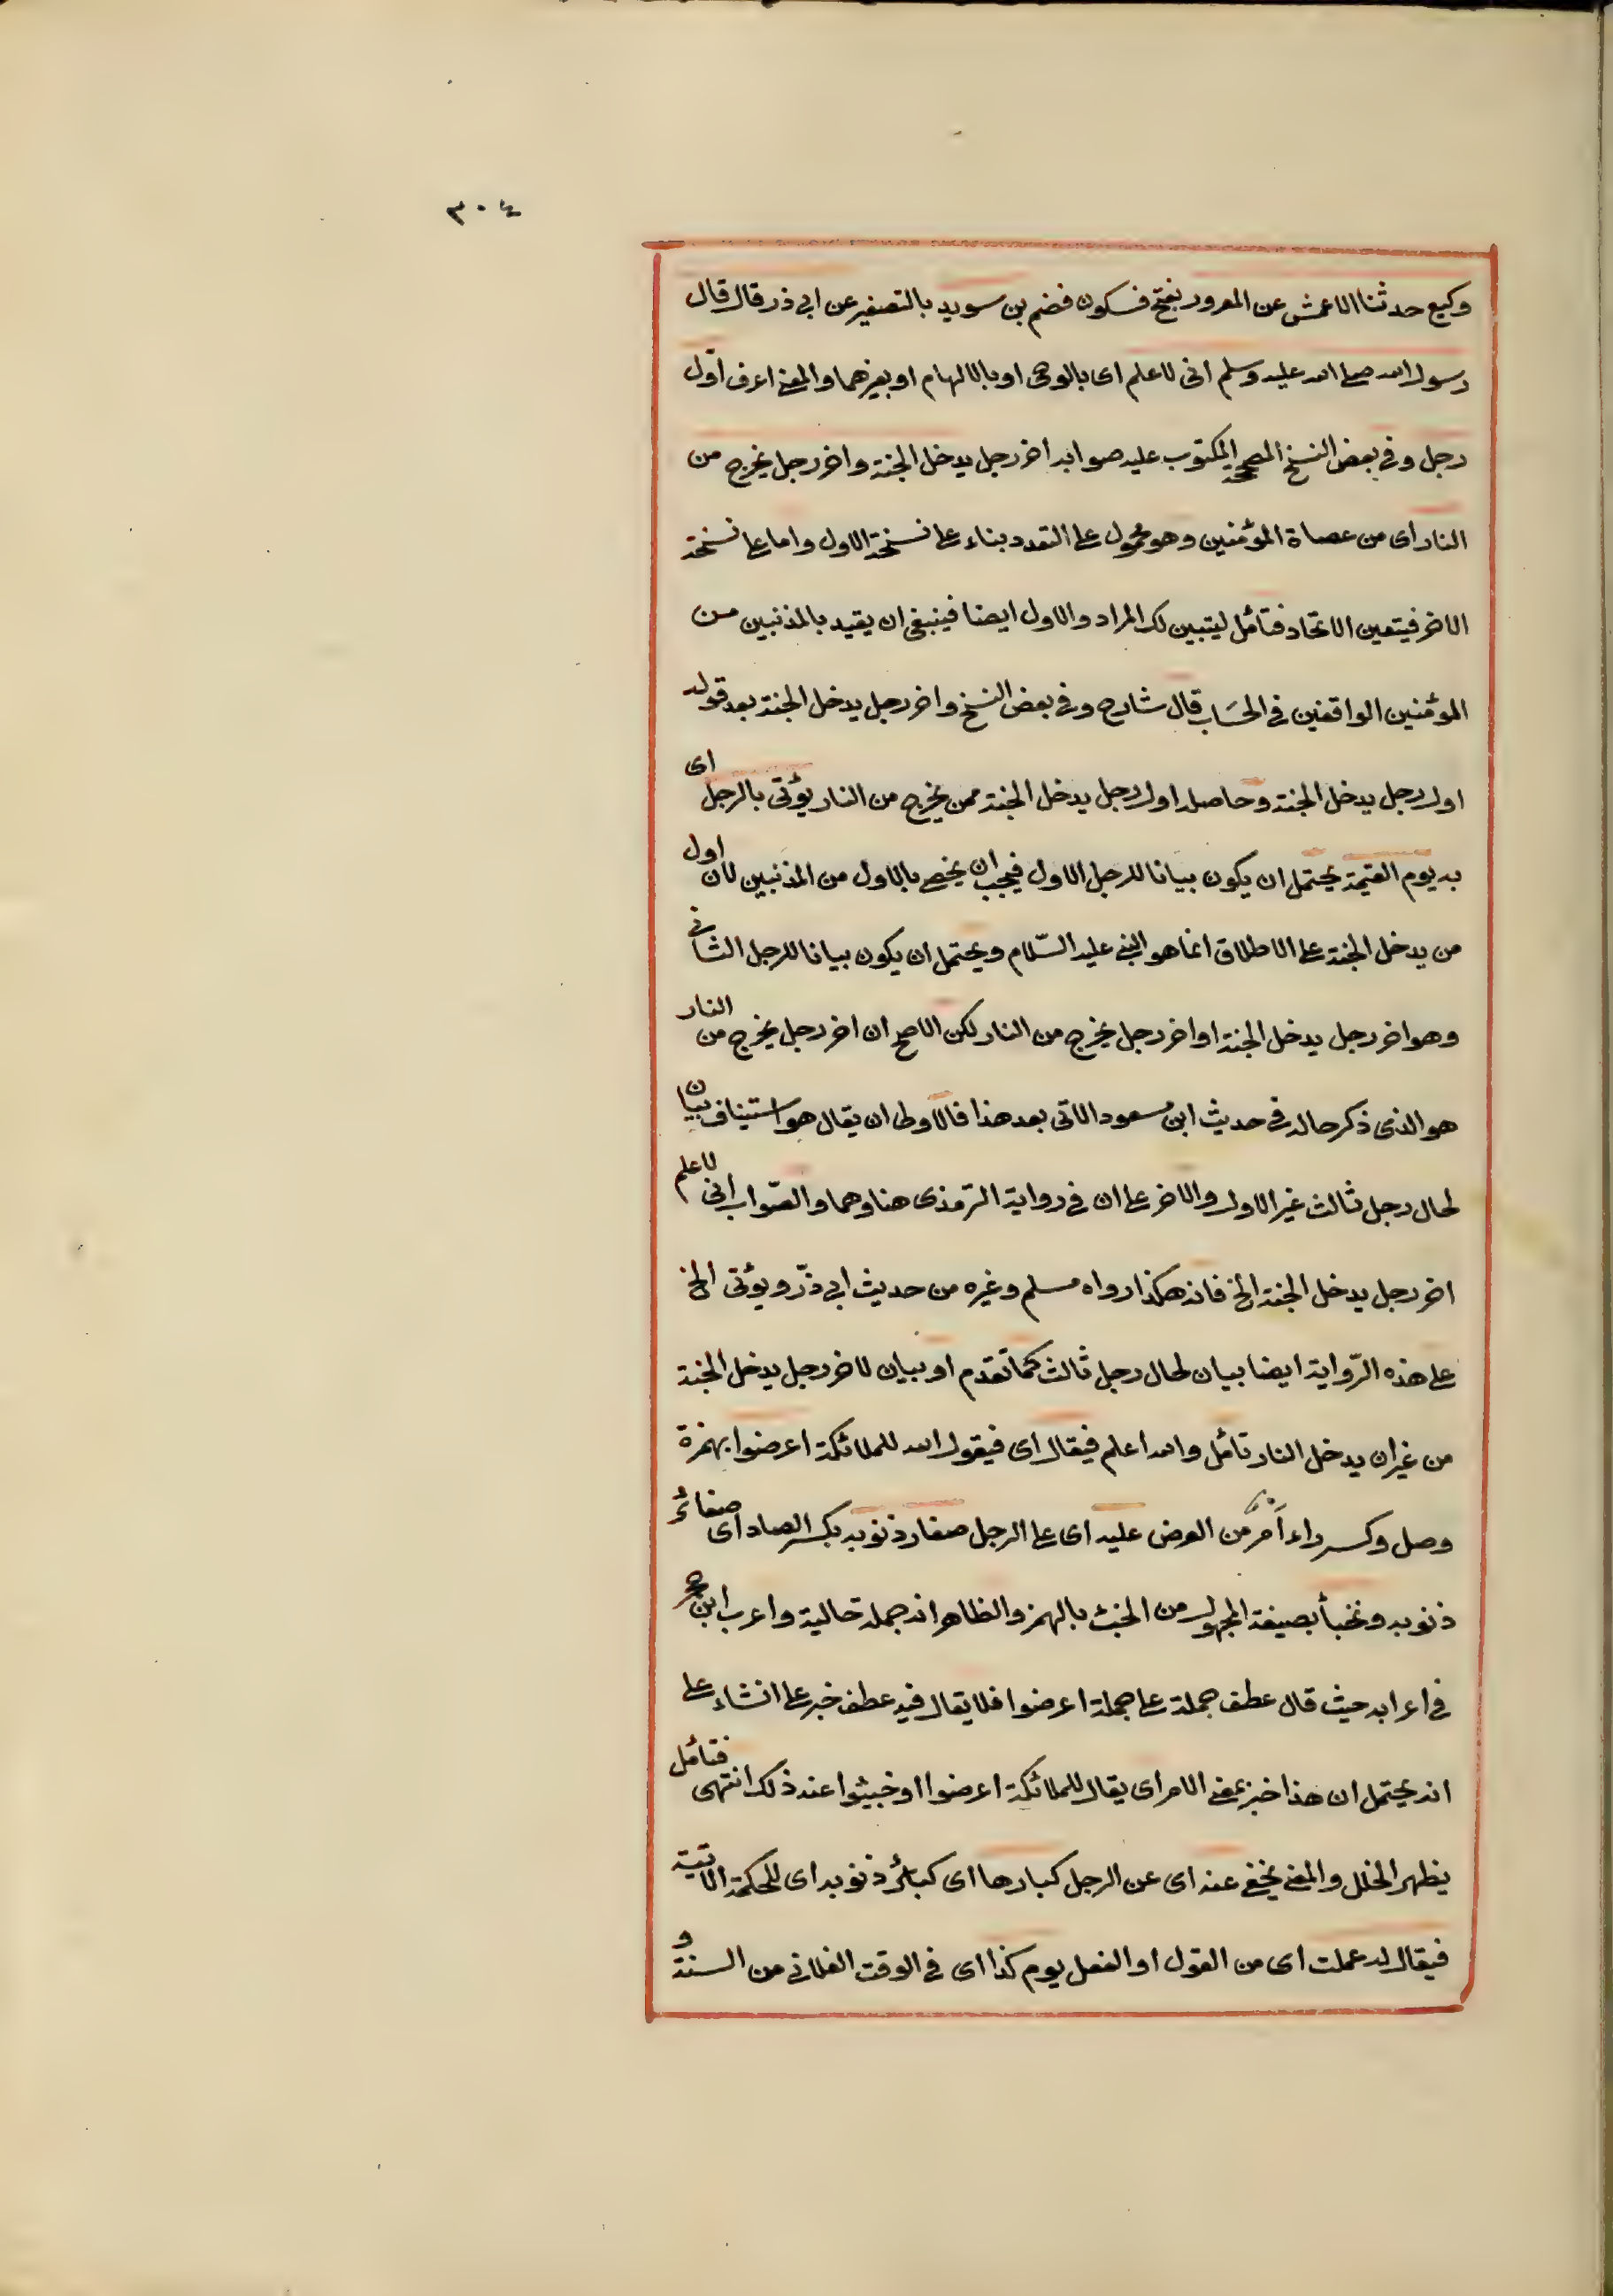 ٣٠٤
وكيع حدثنا الاعمش عن المعرور بفتح فسكون فضم بن سويد بالتصغير عن ابي ذر قال قال
رسول الله صلى الله عليه وسلم انى لاعلم اى بالوحى او بالالهام او بغيرهما والمعنى اعرف اوّل
رجل وفى بعض النسخ المصححة المكتوب عليه صوابه اخر رجل يدخل الجنة واخر رجل يخرج من
النار اى من عصاة المؤمنين وهو محمول على التعدد بناء على نسخة الاول واما على نسخة
الاخر فيتعين الاتحاد فتأمل ليتبين لك المراد والاول ايضا فينبغى ان يقيد بالمذنبين من
المؤمنين الواقفين فى الحساب قال شارح وفى بعض النسخ واخر رجل يدخل الجنة بعد قوله
اول رجل يدخل الجنة وحاصله اول رجل يدخل الجنة ممن يخرج من النار يؤتى بالرجل اى
به يوم القيمة يحتمل ان يكون بيانا للرجل الاول فيجب ان يخص بالاول من المذنبين لان اول
من يدخل الجنة على الاطلاق انما هو النبى عليه السّلام ويحتمل ان يكون بيانا للرجل الثانى
وهو اخر رجل يدخل الجنة او اخر رجل يخرج من النار لكن الاصح ان اخر رجل يخرج من النار
هو الذى ذكر حاله فى حديث ابن مسعود الاتى بعد هذا فالاولى ان يقال هو استيناف بيان
لحال رجل ثالث غير الاول والاخر على ان فى رواية الترمذى هنا وهما والصّواب انى لاعلم
اخر رجل يدخل الجنة الخ فانه هكذا رواه مسلم وغيره من حديث ابي ذرّ ويؤتى الخ
على هذه الرّواية ايضا بيان لحال رجل ثالث كما تقدم او بيان لاخر رجل يدخل الجنة
من غير ان يدخل النار تأمل والله اعلم فيقال اى فيقول الله للملائكة اعرضوا بهمزة
وصل وكسر راء امر من العرض عليه اى على الرجل صغار ذنوبه بكسر الصاد اى صغائر
ذنوبه وتخبأ بصيغة المجهول من الخبث بالهمز والظاهر انه جملة حالية واعرب ابن حجر
فى اعرابه حيث قال عطف جملة على جملة اعرضوا فلا يقال فيه عطف خبر على انشاء على
انه يحتمل ان هذا خبر بمعنى الامر اى يقال للملائكة اعرضوا او خبيئوا عند ذلك انتهى فتأمل
يظهر الخلل والمعنى يخفى عنه اى عن الرجل كبارها اى كبائر ذنوبه اى للحكمة الاتية
فيقال له عملت اى من القول او الفعل يوم كذا اى فى الوقت الفلانى من السنة و